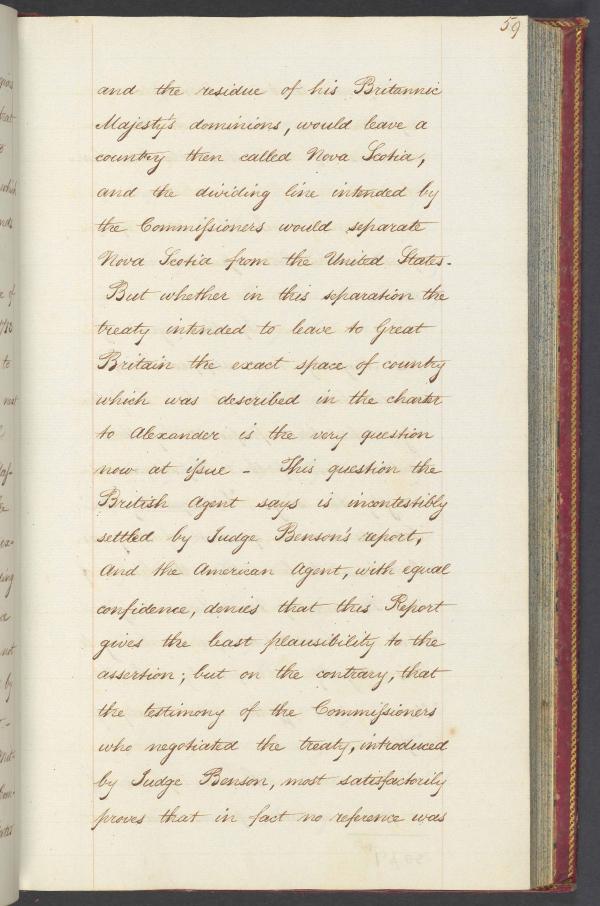 59
and the residue of his Britannic
Majesty's dominions, would leave a
country then called Nova Scotia,
and the dividing line intended by
the Commiſsioners would separate
Nova Scotia from the United States.
But whether in this separation the
treaty intended to leave to Great
Britain the exact space of country
which was described in the charter
to Alexander is the very question
now at iſsue - This question the
British Agent says is incontestibly
settled by Judge Benson's report,
and the American Agent, with equal
confidence, denies that this Report
gives the least plausibility to the
assertion; but on the contrary, that
the testimony of the Commiſsioners
who negotiated the treaty, introduced
by Judge Benson, most satisfactorily
proves that in fact no reference was